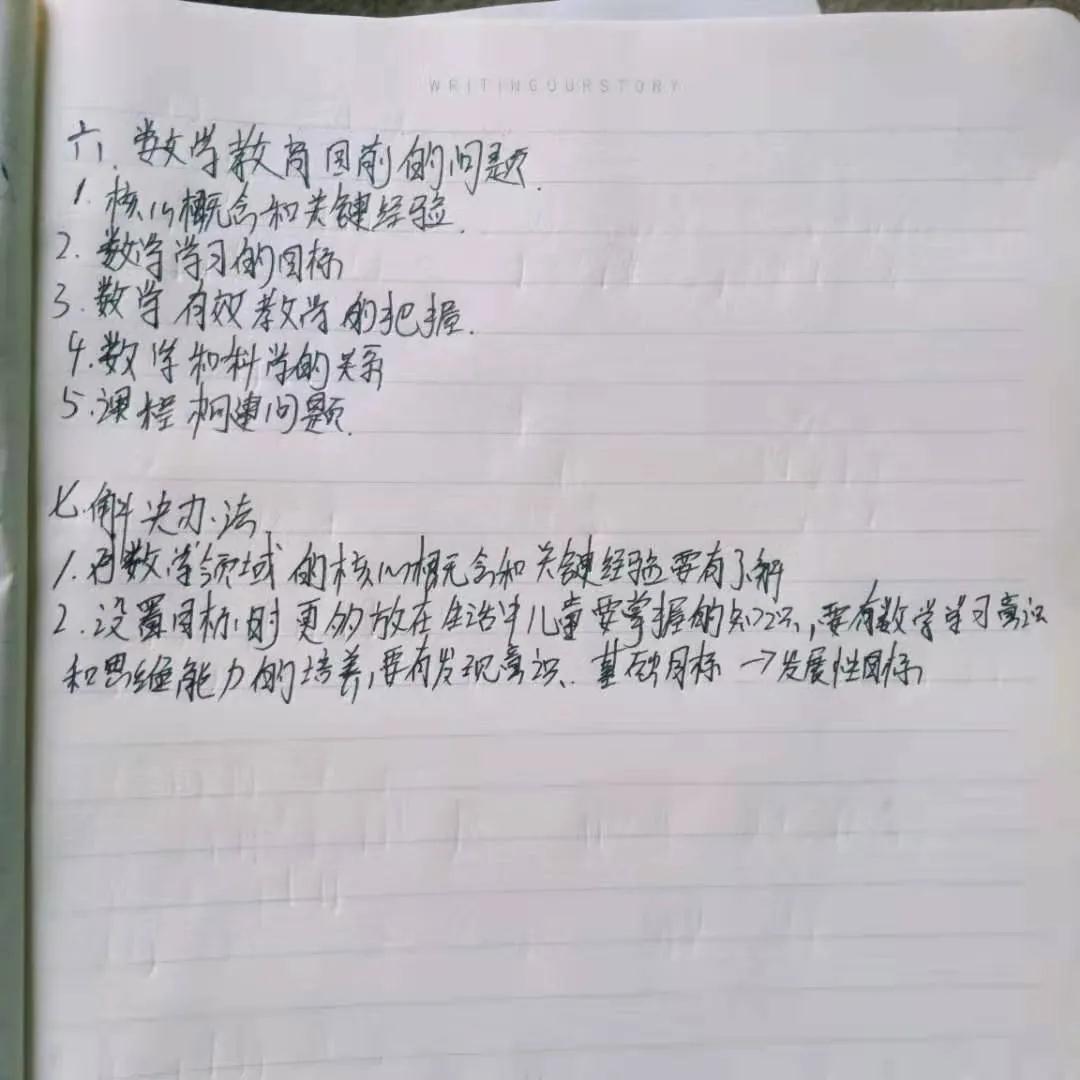 WRITINGOURSTORY
六. 数学教育目前的问题.
1. 核心概念和关键经验.
2. 数学学习的目标
3. 数学有效教学的把握.
4. 数学和科学的关系
5. 课程构建问题.
七. 解决办法.
1. 对数学领域的核心概念和关键经验要有了解
2. 设置目标时更的放在生活中儿童要掌握的知识, 要有数学学习意识
和思维能力的培养, 要有发现意识. 基础目标 → 发展性目标